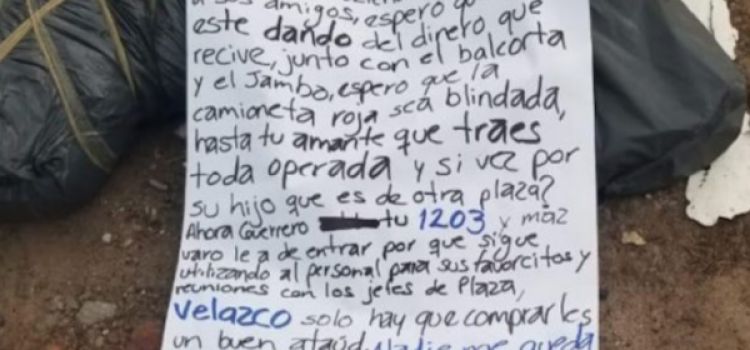 amigos, espero q
este dando del dinero que
recive, junto con el balcorta
y el Jambo, espero que la
camioneta roja sea blindada,
hasta tu amante que traes
toda operada y si vez por
su hijo que es de otra plaza?
Ahora Guerrero tu 1203 y maz
varo le a de entrar por que sigue
utilizando al personal para sus favorcitos y
reuniones con los jefes de Plaza,
Velazco solo hay que comprarles
un buen ataúd, Nadie me queda